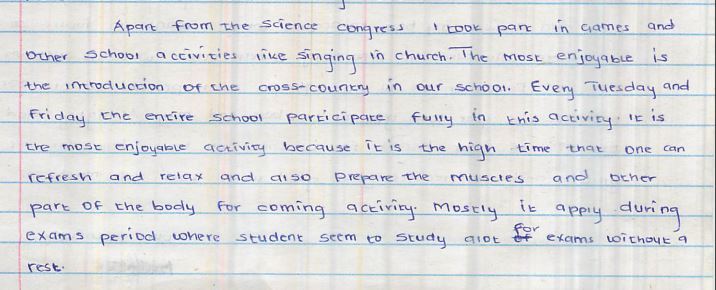 Apart from the science congress I took part in Games and
other school activities like singing in church. The most enjoyable is
the introduction of the cross-country in our school. Every Tuesday and
Friday the entire school participate fully in this activity. It is
the most enjoyable activity because it is the high time that one can
refresh and relax and also prepare the muscles and other
part of the body for coming activity. Mostly it apply during
exams period where student seem to study alot for exams without a
rest.